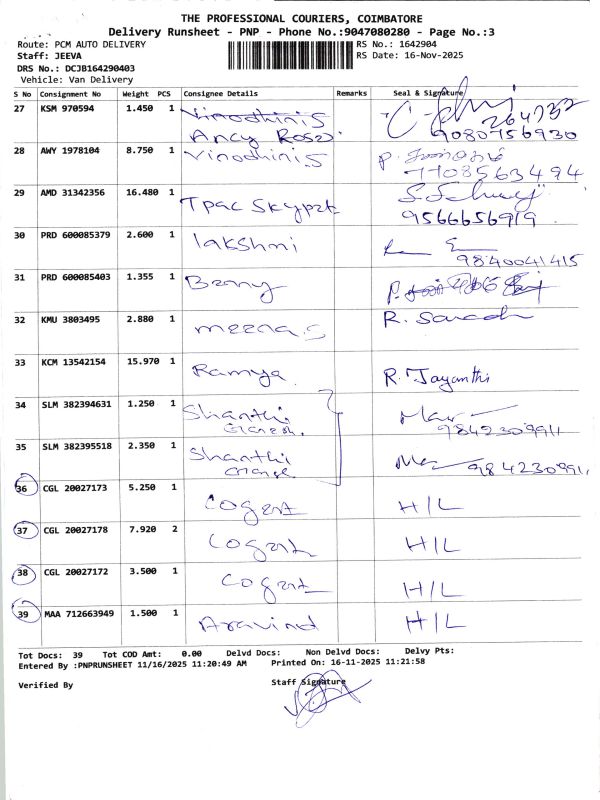 THE PROFESSIONAL COURIERS, COIMBATORE
Delivery Runsheet - PNP - Phone No.:9047080280 - Page No.:3
Route: PCM AUTO DELIVERY
RS No.: 1642904
Staff: JEEVA
RS Date: 16-Nov-2025
DRS No.: DCJB164290403
Vehicle: Van Delivery
S No Consignment No Weight PCS Consignee Details Remarks Seal & Signature
27 KSM 970594 1.450 1 Vinodhini S 264732
Ancy Rose 9080756930
28 AWY 1978104 8.750 1 Vinodhini S
7708563494
29 AMD 31342356 16.480 1 Tpac Skypet
9566656919
30 PRD 600085379 2.600 1 lakshmi
9840041415
31 PRD 600085403 1.355 1 Benny
32 KMU 3803495 2.880 1 meena.S R.
33 KCM 13542154 15.970 1 Ramya R. Jayanthi
34 SLM 382394631 1.250 1 Shanthi
Ganesh. 9842309911
35 SLM 382395518 2.350 1 Shanthi
9842309911
36 CGL 20027173 5.250 1 Cogent H/L
37 CGL 20027178 7.920 2 Cogent H/L
38 CGL 20027172 3.500 1 Cogent H/L
39 MAA 712663949 1.500 1 Aravind H/L
Tot Docs: 39 Tot COD Amt: 0.00 Delvd Docs: Non Delvd Docs: Delvy Pts:
Entered By :PNPRUNSHEET 11/16/2025 11:20:49 AM Printed On: 16-11-2025 11:21:58
Verified By
Staff Signature